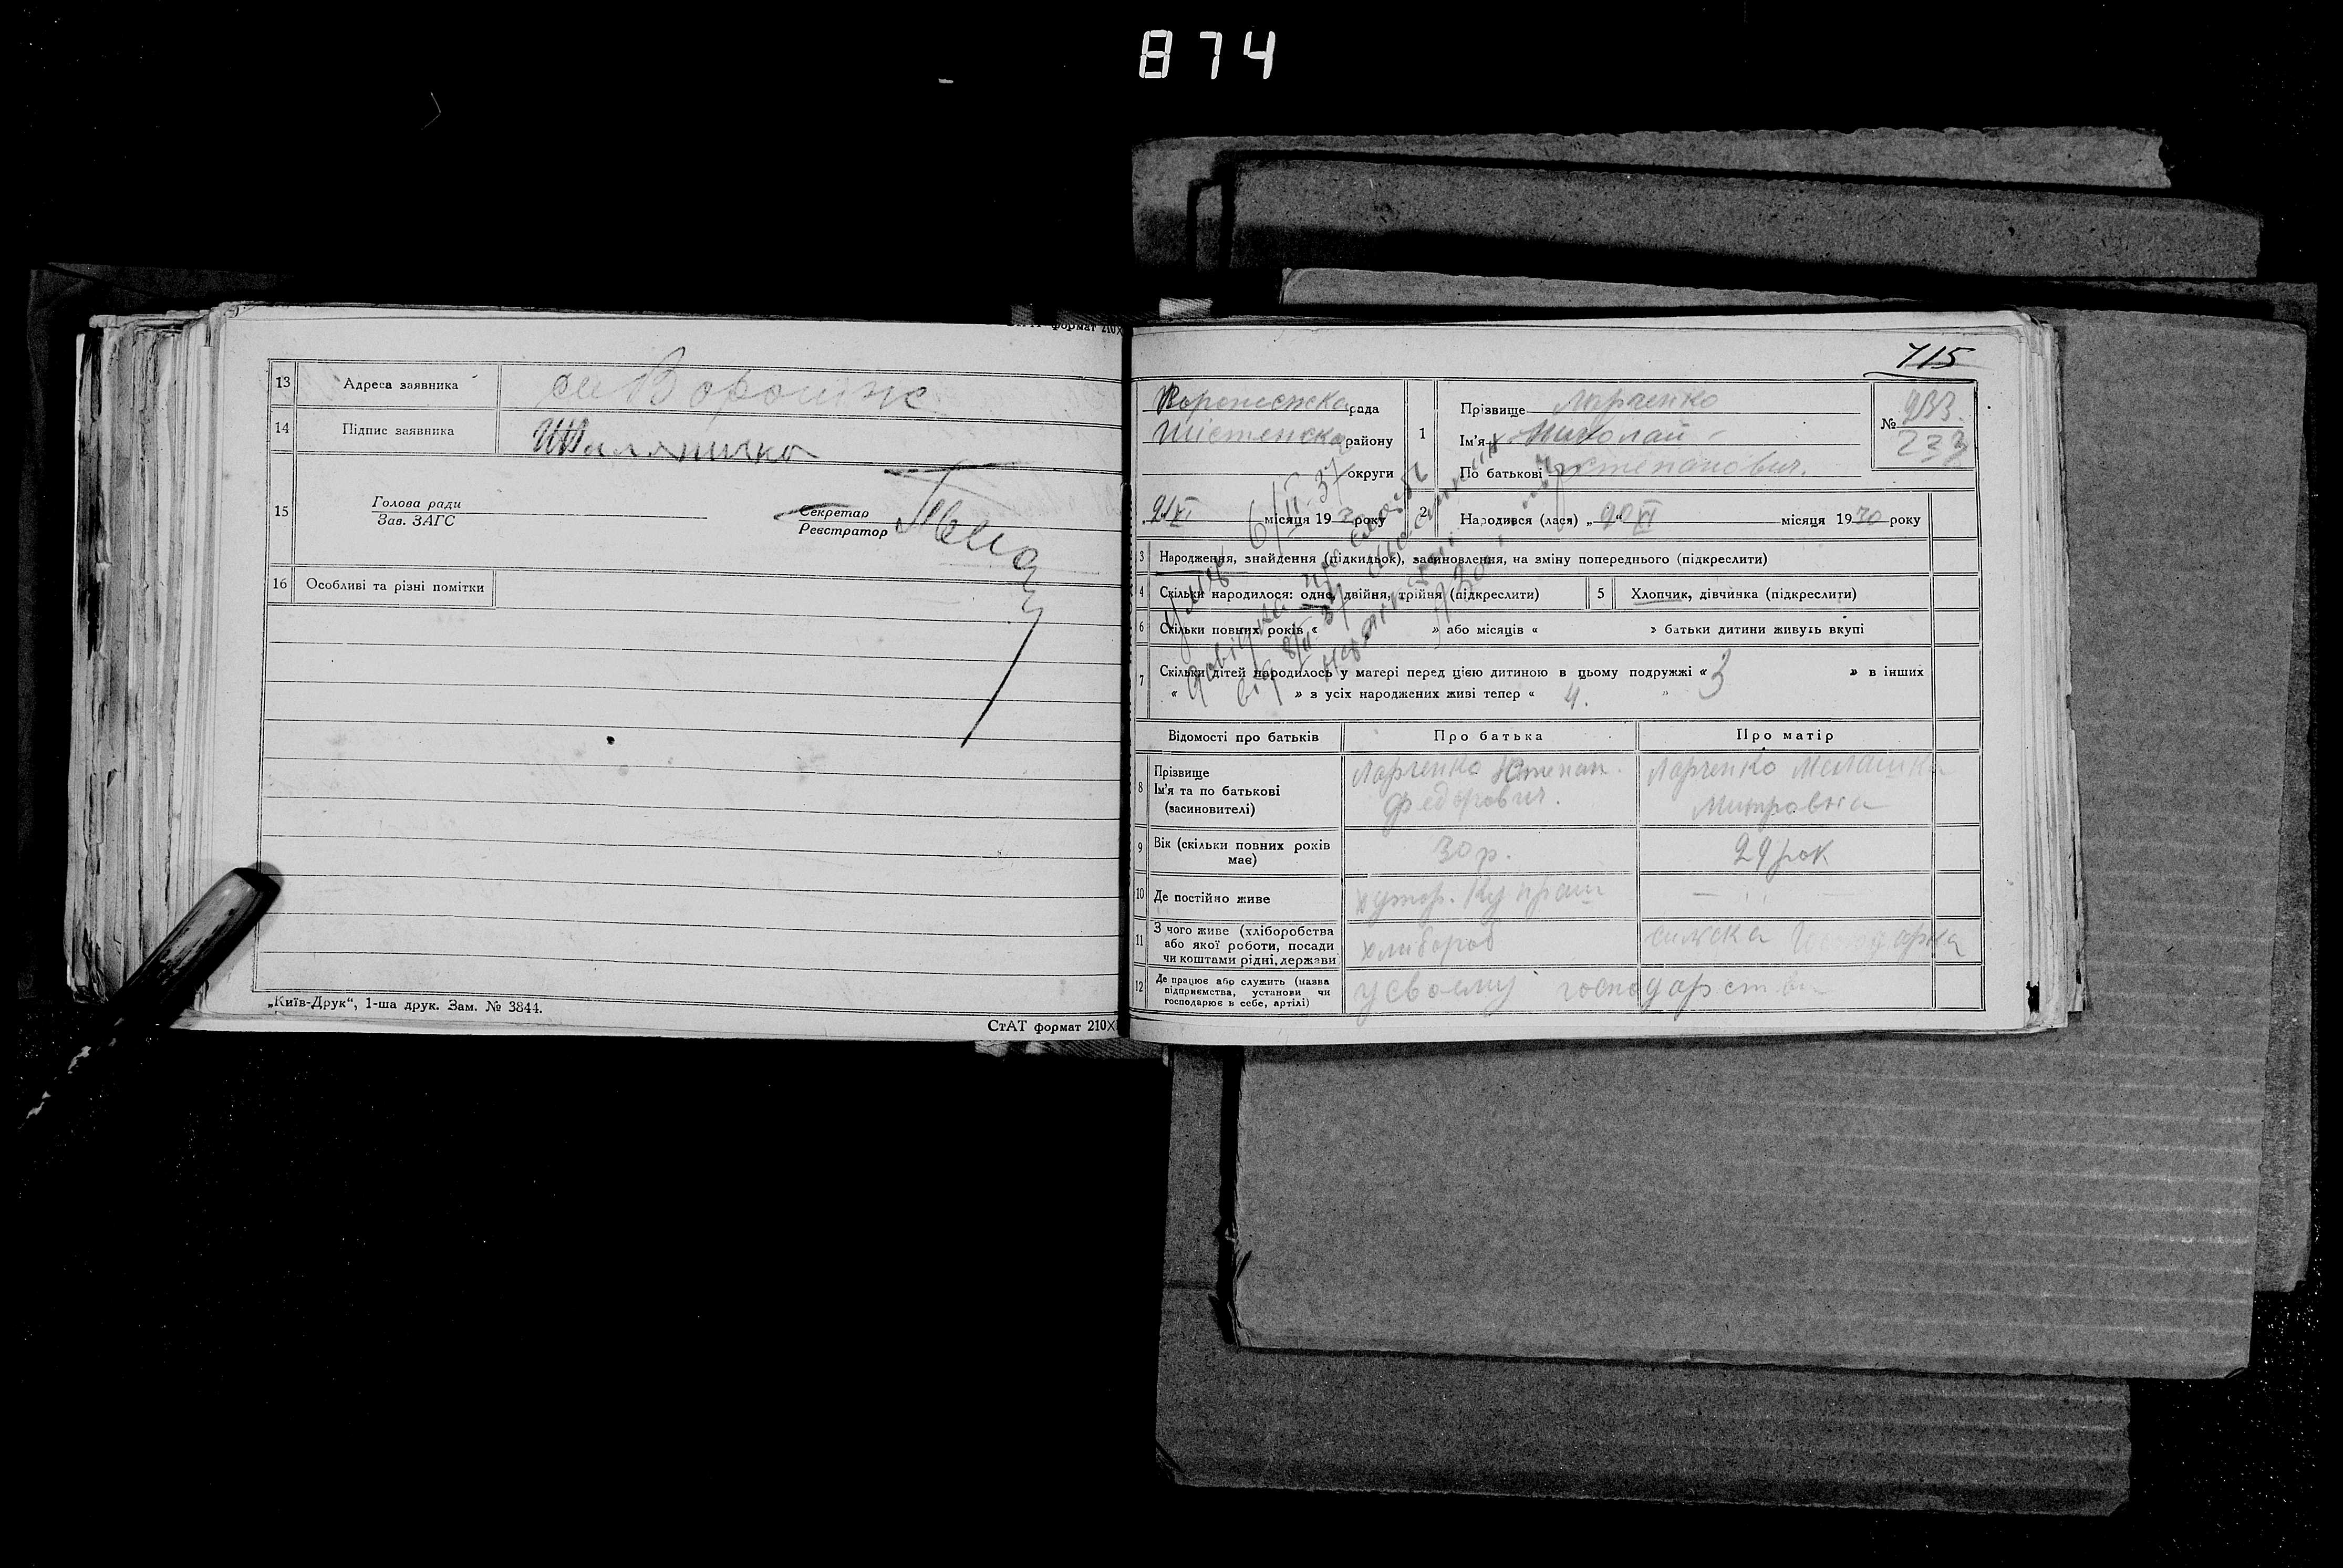 874
СтАТ формат 210X
13 Адреса заявника
14 Підпис заявника
15 Голова ради
Зав. ЗАГС
Секретар
Реєстратор
16 Особливі та різні помітки
„Київ-Друк“, 1-ша друк. Зам. № 3844.
СтАТ формат 210X
715
рада
району
округи
1 Прізвище Ларченко
Ім'я Николай
По батькові Степанович.
№ 233.
233
21/XI місяця 1930 року
2 Народився (лася) „20“ XI місяця 1930 року
3 Народження, знайдення (підкидьок), засиновлення, на зміну попереднього (підкреслити)
4 Скільки народилося: одне, двійня, трійня (підкреслити) 5 Хлопчик, дівчинка (підкреслити)
6 Скільки повних років « » або місяців « » батьки дитини живуть вкупі
7 Скільки дітей народилось у матері перед цією дитиною в цьому подружжі « 3 » в інших
« » з усіх народжених живі тепер « 4. »
Відомості про батьків Про батька Про матір
8 Прізвище
Ім'я та по батькові
(засиновителі)
Ларченко Степан
Федорович.
Ларченко Мелашка
Митровна
9 Вік (скільки повних років
має)
30 р.
29 рок
10 Де постійно живе хутор.
11 З чого живе (хліборобства
або якої роботи, посади
чи коштами рідні, держави
хлибороб
господарка
12 Де працює або служить (назва
підприємства, установи чи
господарює в себе, артілі)
у своему господарстви